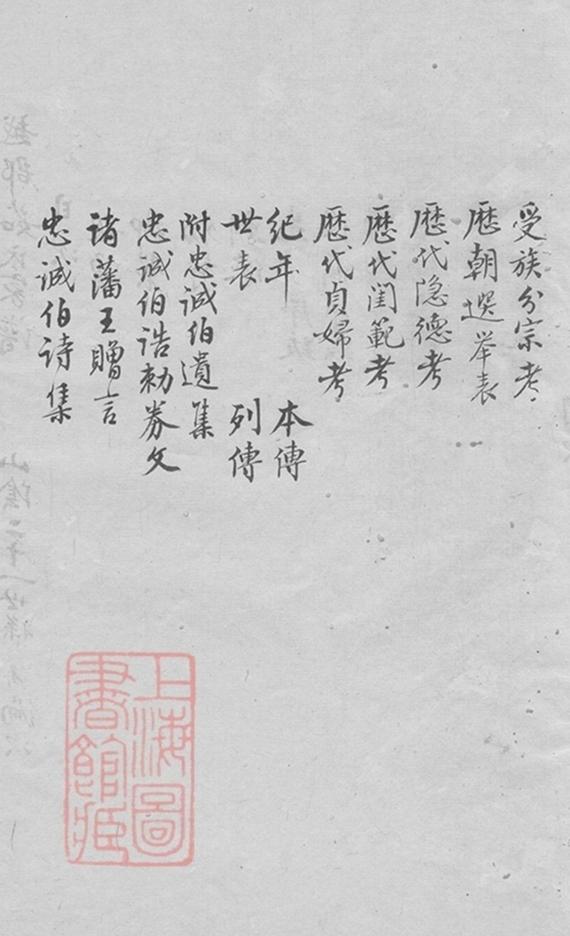 受族分宗考
歷朝選举表
歷代隐德考
歷代閨範考
歷代貞婦考
紀年 本傳
世表 列傳
附忠誠伯遺集
忠诚伯诰勅券文
诸藩王贈言
忠诚伯诗集
上海圖
書館藏